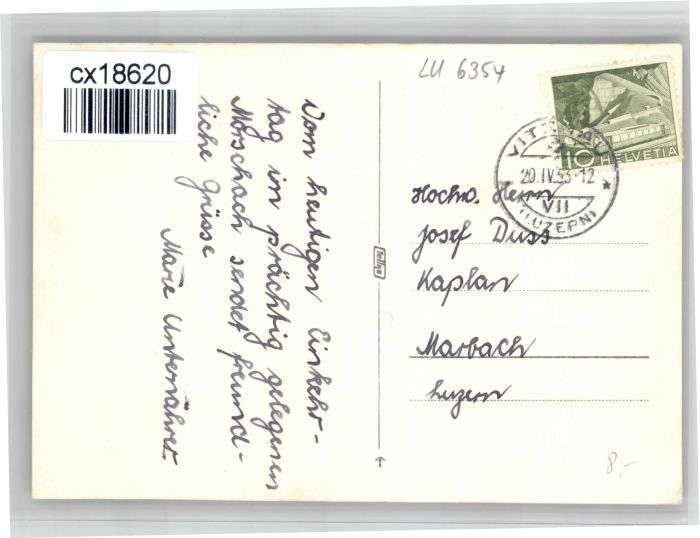 cx18620
LU 6354
Vom heutigen Einkehr-
tag im prächtig gelegenen
Morschach sendet freund-
liche Grüsse
Marie Unternährer.
10 HELVETIA
20.IV.53-12
VII
(LUZERN)
Hochw. Herrn
Josef Duss
Kaplan
Marbach
Luzern
8.-